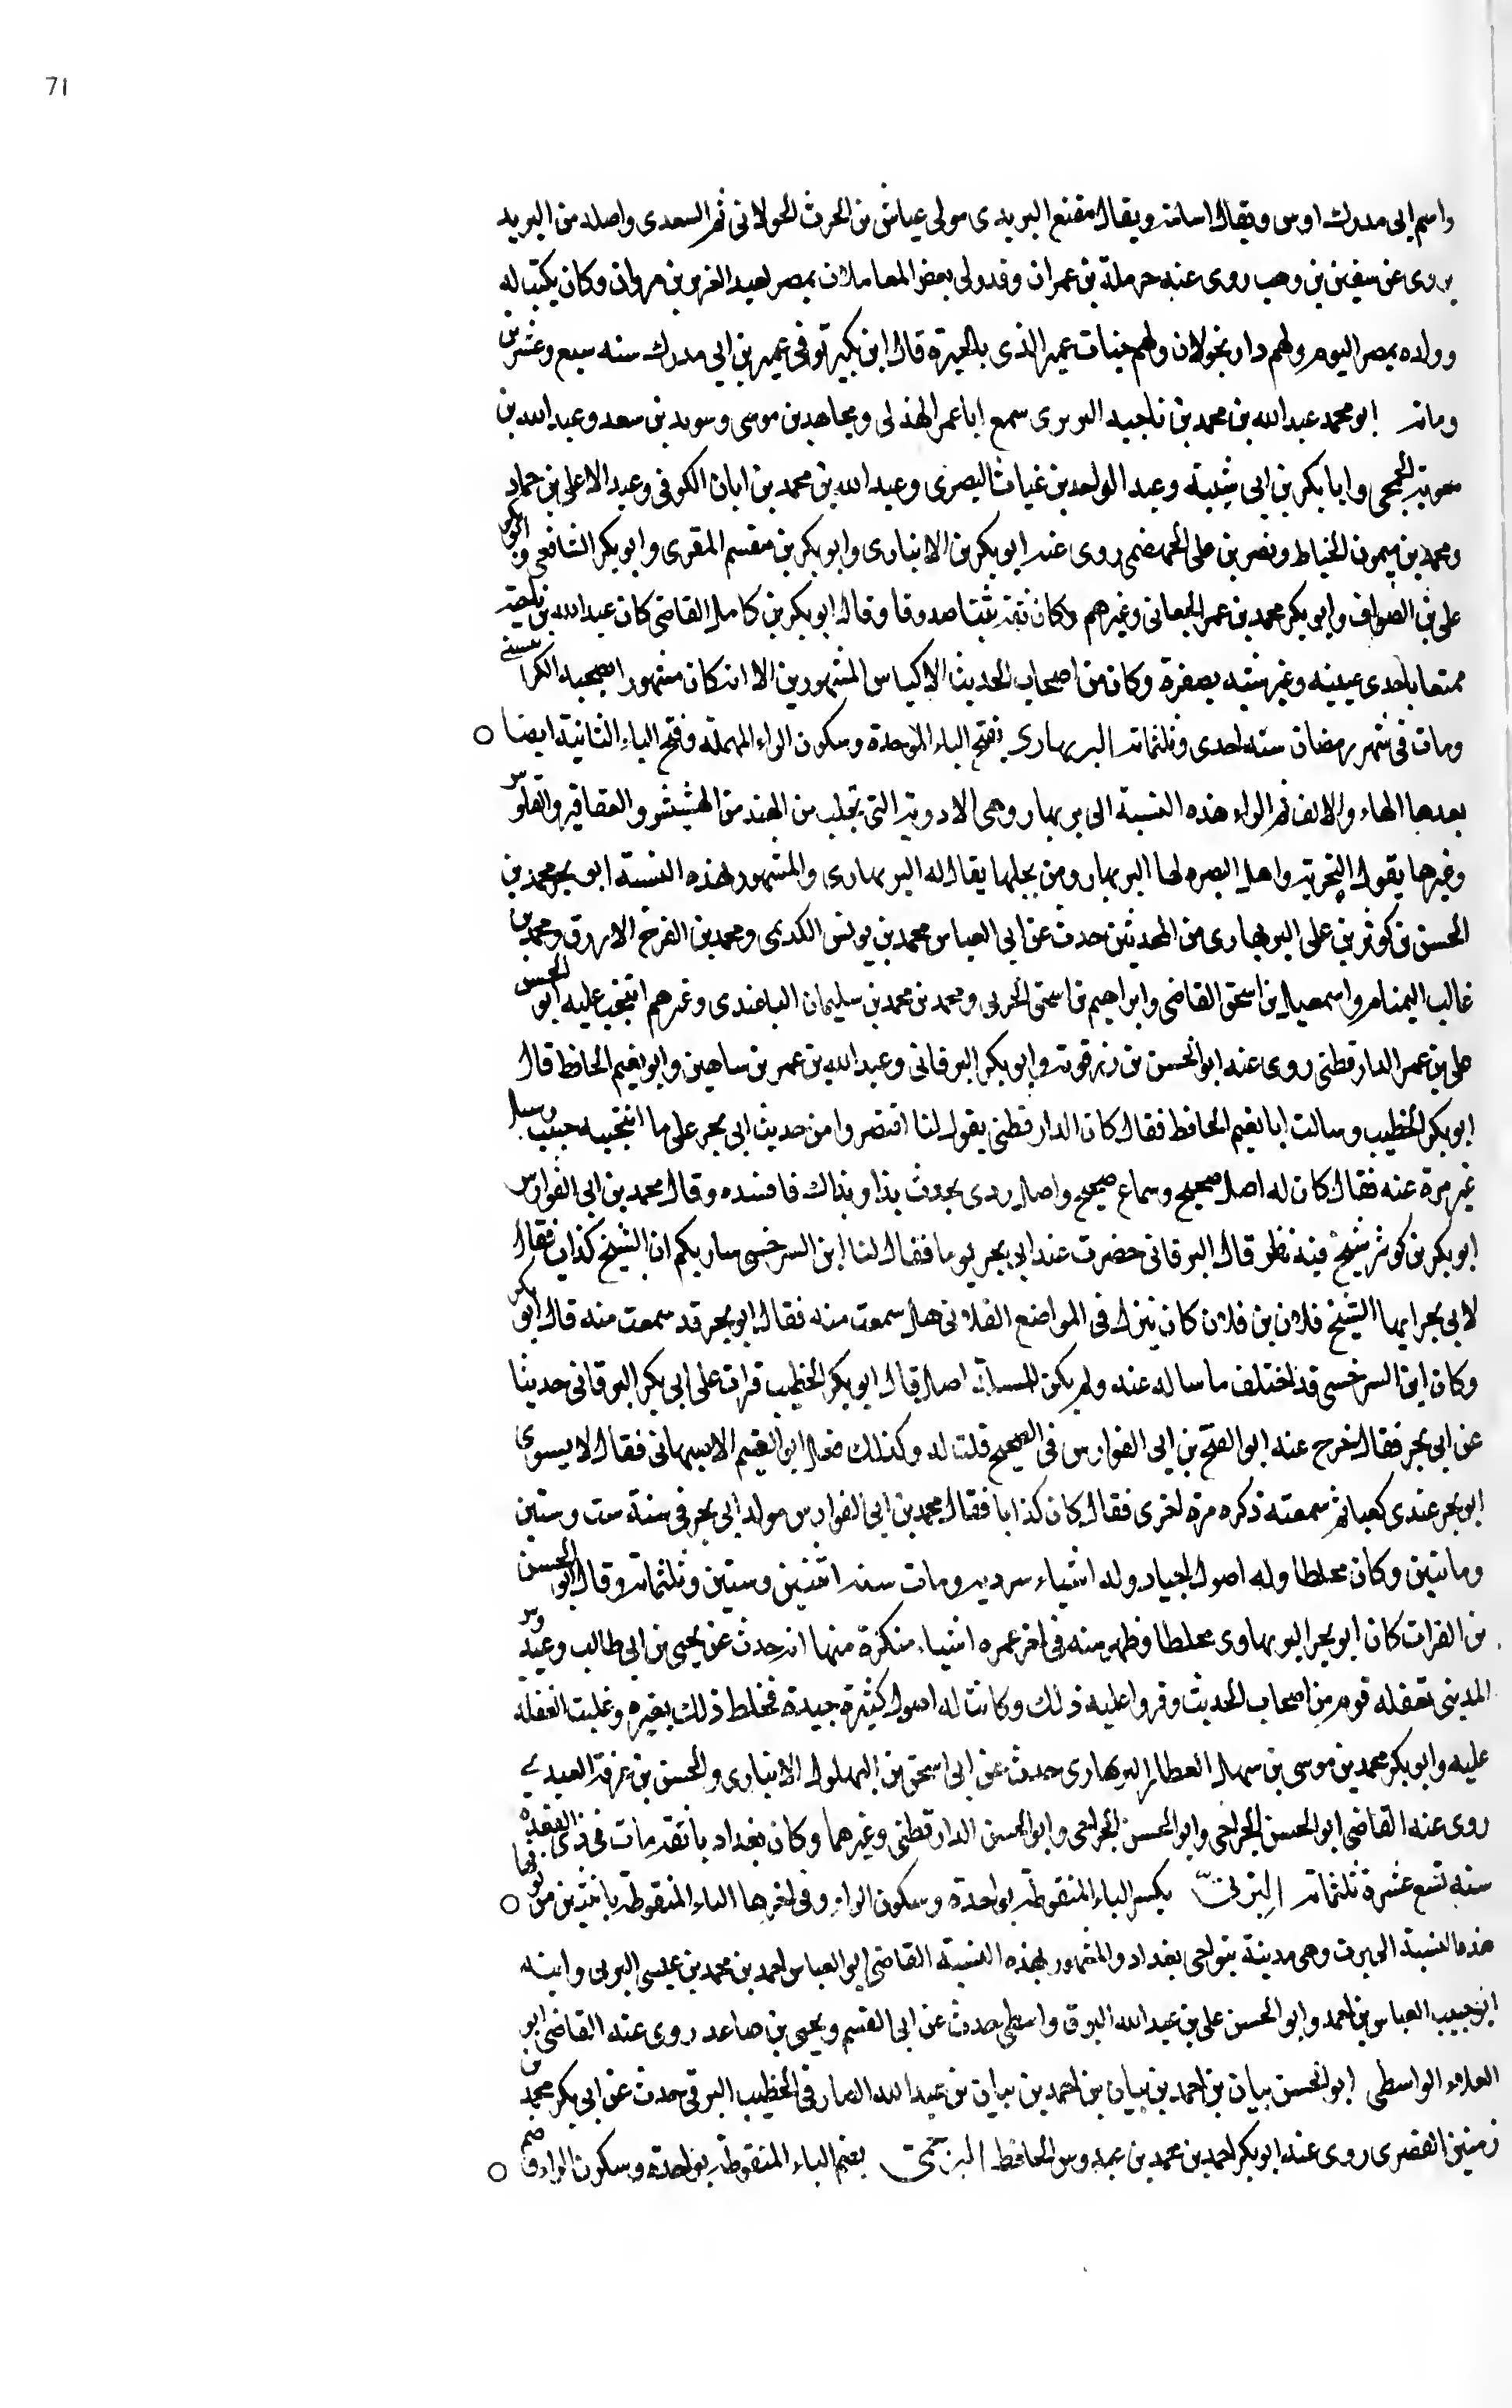 71
واسم ابى مدرك اوس ويقال اسامة ويقال مقنع البريدى مولى عياش بن الحرث الخولانى ثم السعدى واصله من البريد
يروى عن سفين بن وهب روى عنه حرملة بن عمران وقد ولى بعض المعاملات بمصر لعبد العزيز بن مروان وكان يكتب له
وولده بمصر اليوم ولهم دار بخولان ولهم جنات عمير الذى بالجيزة قال ابن بكير توفى عمير بن ابى مدرك سنه سبع وعشرين
وماته ابو محمد عبد الله بن محمد بن ناجيه البربرى سمع ابا عمر الهذلى ومجاهد بن موسى وسويد بن سعد وعبد الله بن
معوية الجمحى وابا بكر بن ابى شيبة وعبد الواحد بن غياث البصرى وعبد الله بن محمد بن ابان الكوفى وعبد الاعلى بن حماد
ومحمد بن ميمون الخياط ونصر بن على الجهضمى روى عنه ابو بكر بن الانبارى وابو بكر بن مقسم المقرى وابو بكر الشافعى وابو
على بن الصواف وابو بكر محمد بن عمر الجعانى وغيرهم وكان ثقة ثبتا صدوقا وقال ابو بكر بن كامل القاضى كان عبد الله بن ناجية
ممتعا باحدى عينيه وغير شيبه بصفرة وكان من اصحاب الحديث الاكياس المشهورين الا انه كان مشهورا بصحبه الكرا
ومات فى شهر رمضان سنه احدى وثلثمائة البربهارى بفتح الباء الموحدة وسكون الراء المهملة وفتح الباء الثانية ايضا
بعدها الهاء والالف ثم الراء هذه النسبة الى بربهار وهى الادوية التى تجلب من الهند من الحشيش والعقاقير والفلوس
وغيرها يقول البحرية واهل البصره لها البربهار ومن يجلبها يقال له البربهارى والمشهور بهذه النسبة ابو بحر محمد بن
الحسن بن كوثر بن على البربهارى من المحدثين حدث عن ابى العباس محمد بن يونس الكديمى ومحمد بن الفرج الازرق ومحمد بن
غالب التمتام واسمعيل بن اسحق القاضى وابراهيم بن اسحق الحربى ومحمد بن محمد بن سليمان الباغندى وغيرهم انتخب عليه ابو الحسن
على بن عمر الدارقطنى روى عنه ابو الحسن بن رزقويه وابو بكر البرقانى وعبد الله بن عمر بن ساهين وابو نعيم الحافظ قال
ابو بكر الخطيب وسالت ابا نعيم الحافظ فقال كان الدارقطنى يقول لنا اقتصروا من حديث ابى بحر على ما انتخبته حسب وسيل
غير مرة عنه فقال كان له اصل صحيح وسماع صحيح واصل ردى يحدث بذا وبذاك فافسده وقال محمد بن ابى الفوارس
ابو بكر بن كوثر شيخ فيه نظر قال البرقانى حضرت عند ابى بحر يوما فقال لنا ابن السرخسى ساريكم ان الشيخ كذاب فقال
لابى بحر ايها الشيخ فلان بن فلان كان ينزل فى المواضع الفلانى هل سمعت منه فقال ابو بحر قد سمعت منه قال ابو بكر
وكان ابن السرخسى قد اختلف ما ساله عنه ولم يكن للمسالة اصل قال ابو بكر الخطيب قرات على ابى بكر البرقانى حديثا
عن ابى بحر فقال خرج عنه ابو الفتح بن ابى الفوارس فى الصحيح قلت له وكذلك فعل ابو نعيم الاصبهانى فقال لا يسوى
ابو بحر عندى كعبا ثم سمعته ذكره مرة اخرى فقال كان كذابا فقال محمد بن ابى الفوارس مولد ابى بحر فى سنة ست وستين
وماتين وكان مخلطا وله اصول جياد وله اشياء سرديه ومات سنه اثنين وستين وثلثمائة وقال ابو الحسن
بن الفرات كان ابو بحر البربهارى مخلطا وظهر منه فى اخر عمره اشياء منكرة منها انه حدث عن يحيى بن ابى طالب وعبدوس
المدينى تغفله قوم من اصحاب الحديث وقروا عليه ذلك وكانت له اصول كثيرة جيدة فخلط ذلك بغيره وغلبت الغفلة
عليه وابو بكر محمد بن موسى بن سهل العطار البربهارى حدث عن ابى اسحق بن البهلول الانبارى والحسن بن عرفة العبدى
روى عنه القاضى ابو الحسن الجراحى وابو الحسن الجراحى وابو الحسن الدارقطنى وغيرهما وكان بغداد يا ثقة مات فى ذى القعدة
سنه تسع عشرة ثلثمائة البرتى بكسر الباء المنقوطة بواحدة وسكون الراء وفى اخرها التاء المنقوطة باثنتين من فوقها
هذه النسبة الى برت وهى مدينة بنواحى بغداد والمشهور بهذه النسبة القاضى ابو العباس احمد بن محمد بن عيسى البرتى وابنه
ابو حبيب العباس بن احمد وابو الحسن على بن عبد الله البرتى واسطى حدث عن ابى القسم ويحيى بن صاعد روى عنه القاضى ابو
العلاء الواسطى ابو الحسن بيان بن احمد بن بيان بن احمد بن بيان بن عبد الله الصارفى الخطيب البرتى حدث عن ابى بكر محمد بن
زمنين القصرى روى عنه ابو بكر احمد بن محمد بن عبدوس الحافظ البرجمى بضم الباء المنقوطة بواحدة وسكون الراء وضم